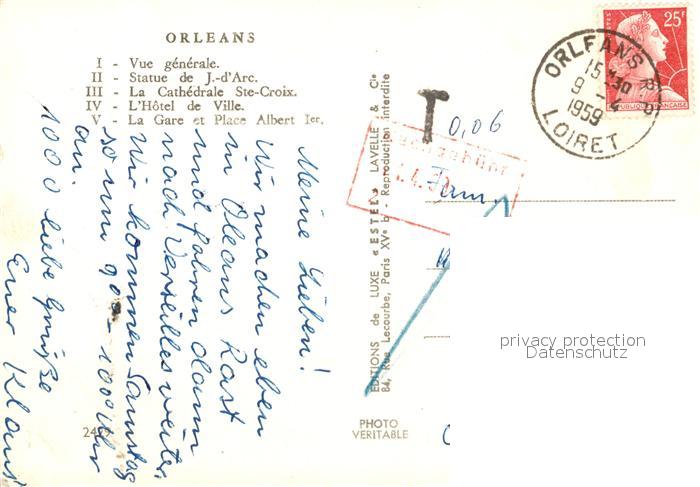 ORLEANS
I - Vue générale.
II - Statue de J.-d'Arc.
III - La Cathédrale Ste-Croix.
IV - L'Hôtel de Ville.
V - La Gare et Place Albert Ier.
Meine Lieben!
Wir machen eben
in Orleans Rast
und fahren dann
nach Verseilles weiter.
Wir kommen Samstag
so um 900 - 1000 Uhr
an.
1000 liebe Grüße
Euer Klaus
EDITIONS de LUXE « ESTEL » LAVELLE & Cie
84, Rue Lecourbe, Paris XVe b - Reproduction interdite
PHOTO
VERITABLE
T
0,06
Nachgebühr
Fam.
25F
POSTES
REPUBLIQUE FRANÇAISE
ORLEANS R.P.
15H30
9 - 4
1959
LOIRET
privacy protection
Datenschutz